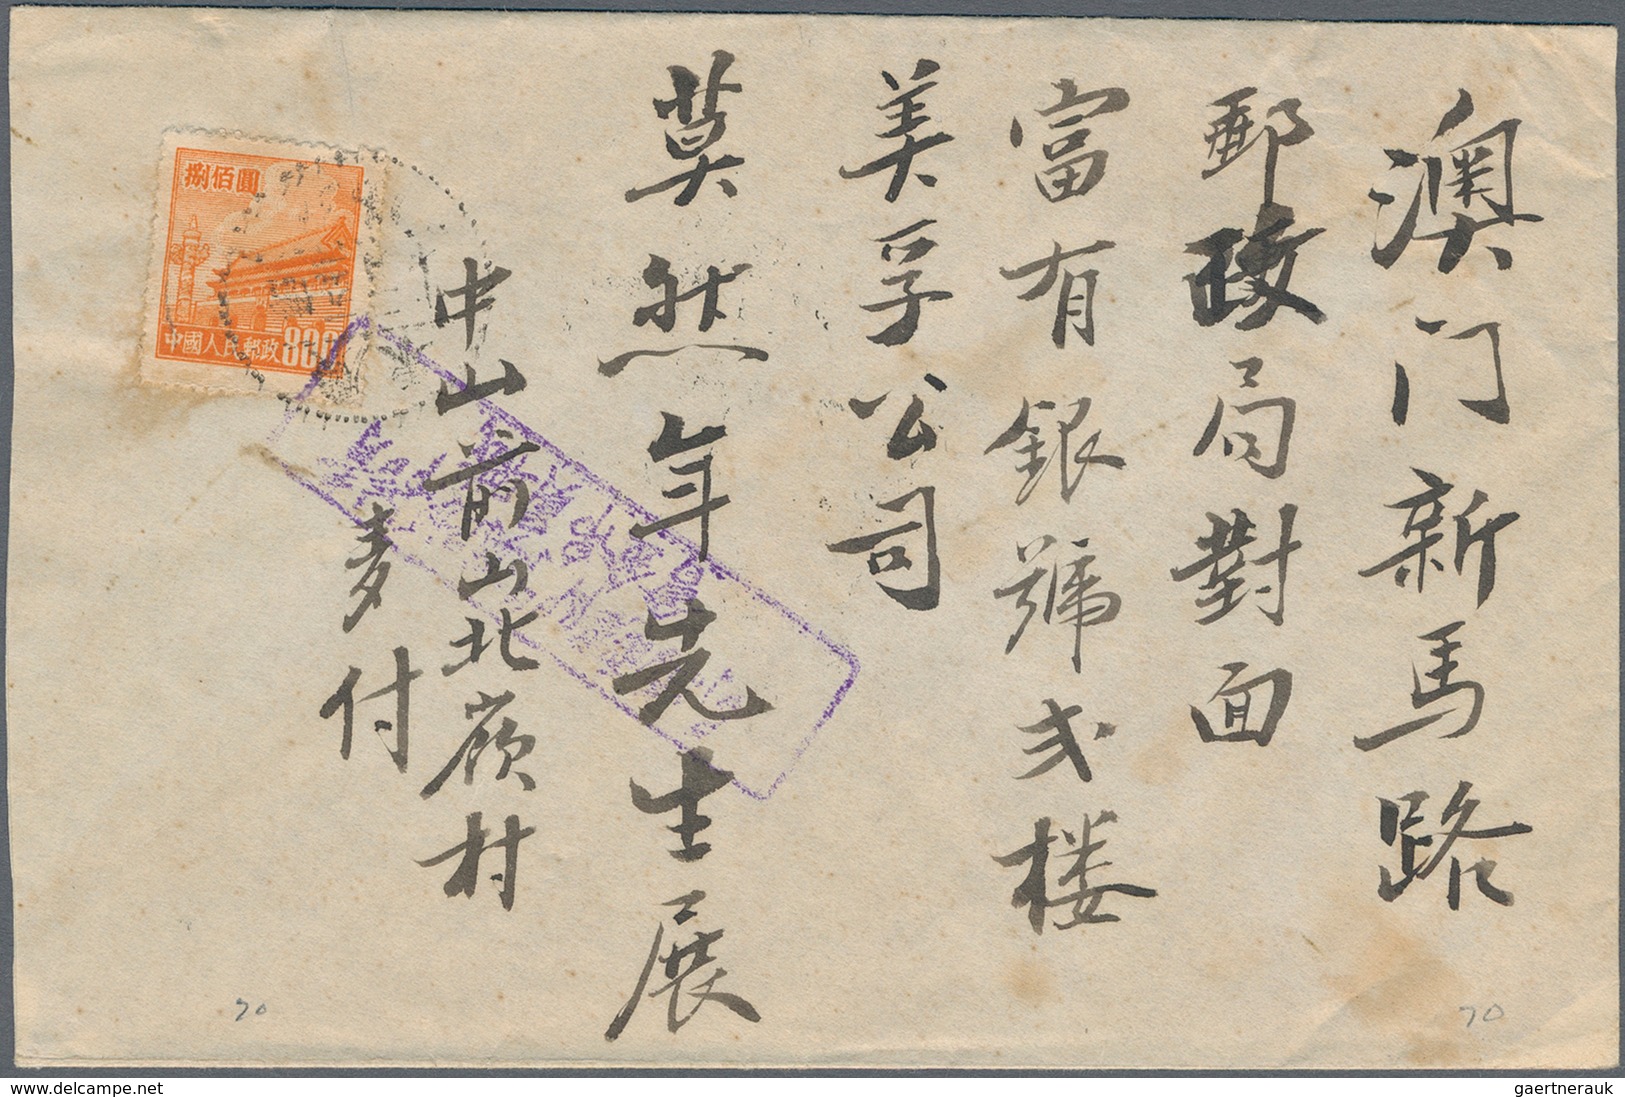 澳门新馬路
郵政局對面
富有銀號弍楼
美孚公司
莫然年先生展
中山前山北嶺村
麦付
捌佰圓
中國人民郵政800
70
70
www.delcampe.net
gaertnerauk